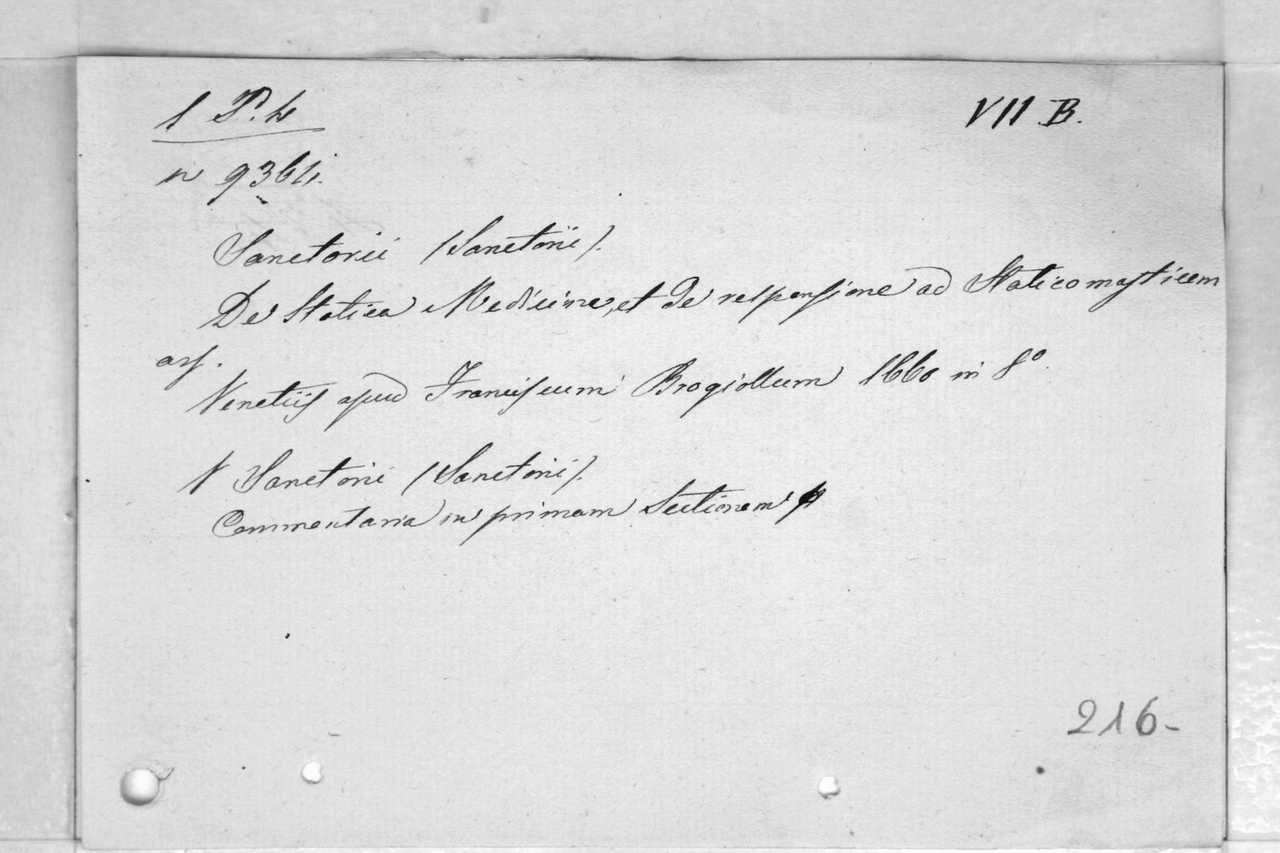 1 P. 4
VII B.
n 9364.
Sanctorii (Sanctorii).
De Statica Medicina, et de responsione ad Staticomasticem
ars.
Venetiis apud Franciscum Brogiollum 1660 in 8º.
V Sanctorii (Sanctorii).
Commentaria in primam Sectionem
216-